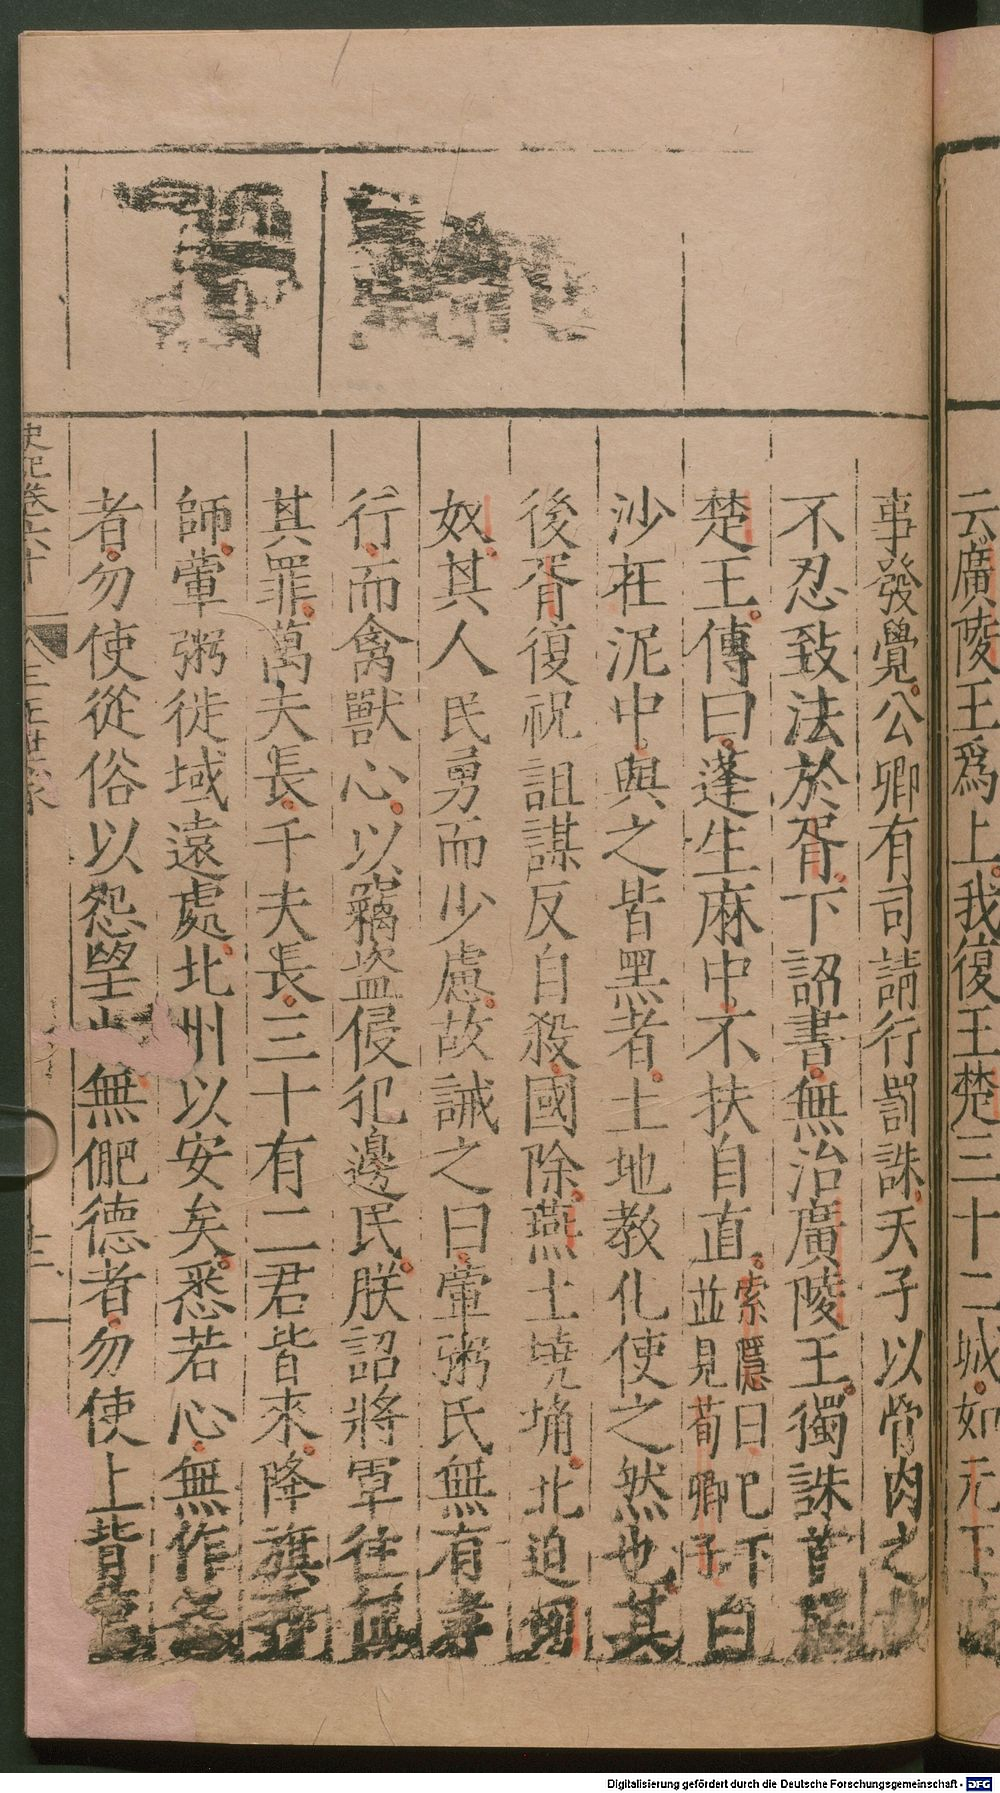 云廣陵王爲上我復王楚三十二城如元王
事發覺公卿有司請行罰誅天子以骨肉之
不忍致法於胥下詔書無治廣陵王獨誅首
楚王傳曰蓬生麻中不扶自直索隱曰已下
並見荀卿子白
沙在泥中與之皆黑者土地教化使之然也其
後胥復祝詛謀反自殺國除燕土墝埆北迫匈
奴其人民勇而少慮故誡之曰葷粥氏無有孝
行而禽獸心以竊盜侵犯邊民朕詔將軍往征
其罪萬夫長千夫長三十有二君皆來降旗奔
師葷粥徙域遠處北州以安矣悉若心無作怨
者勿使從俗以怨望也無俷德者勿使上背
史記卷六十
三王世家